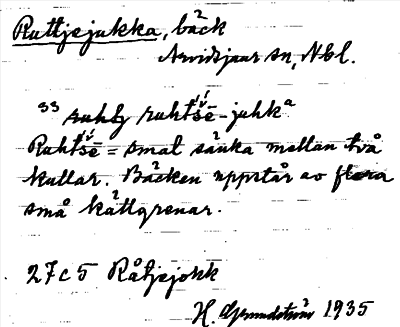 Ruttjejukka, bäck
Arvidsjaur sn, Nbl.
ruhtšē-juhkᵃ
Ruhtšē = smal sänka mellan två
kullar. Bäcken uppstår av flera
små källgrenar.
27c5 Råtjejokk
H. Grundström 1935